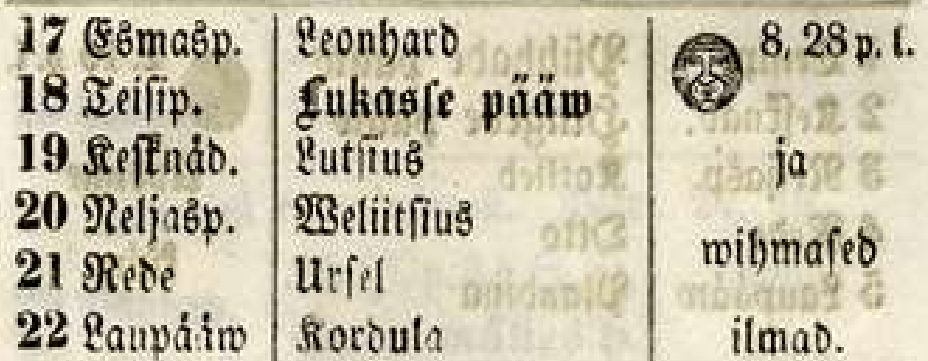 17 Esmasp. Leonhard 8, 28 p. l.
18 Teisip. Lukasse pääw
19 Keſknäd. Lutſius ja
20 Neljasp. Weliitſius wihmaſed
21 Rede Urſel
22 Laupääw Kordula ilmad.